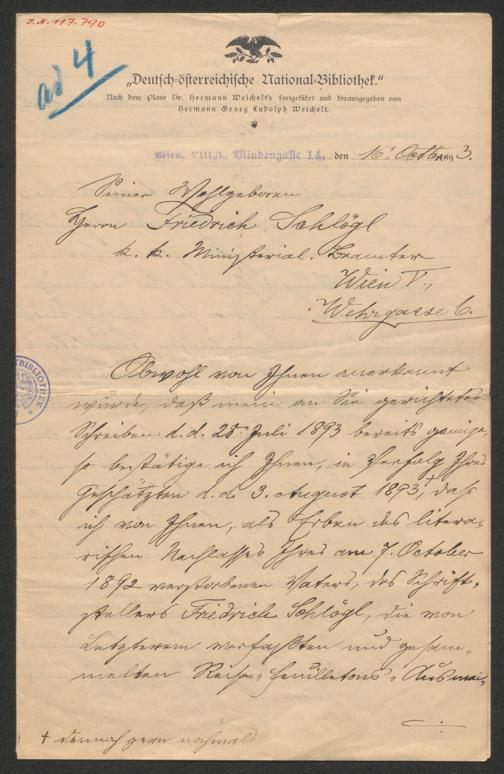 I.N. 117.790
ad 4
„Deutsch-österreichische National-Bibliothek.“
Nach dem Plane Dr. Hermann Weichelt's fortgeführt und herausgegeben von
Hermann Georg Ludolph Weichelt.
Wien, VIII/1, Lindengasse 14, den 16. Octb. 1893.
Seiner Wohlgeboren
Herrn Friedrich Schlögl
k. k. Ministerial-Beamter
Wien V.,
Wehrgasse 6.
Obwohl von Ihnen anerkannt
wurde, daß mein an Sie gerichtetes
Schreiben d. d. 28ten Juli 1893 bereits genüge,
so bestätige ich Ihnen, in Verfolg Ihres
Geschätzten d. d. 3. August 1893,+ daß
ich von Ihnen, als Erben des litera-
rischen Nachlasses Ihres am 7. October
1892 verstorbenen Vaters, des Schrift-
stellers Friedrich Schlögl, die von
Letzterem verfaßten und gesam-
melten Reise-Feuilletons „Aus mei-
+ dennoch gern nochmals
BIBLIOTHEK